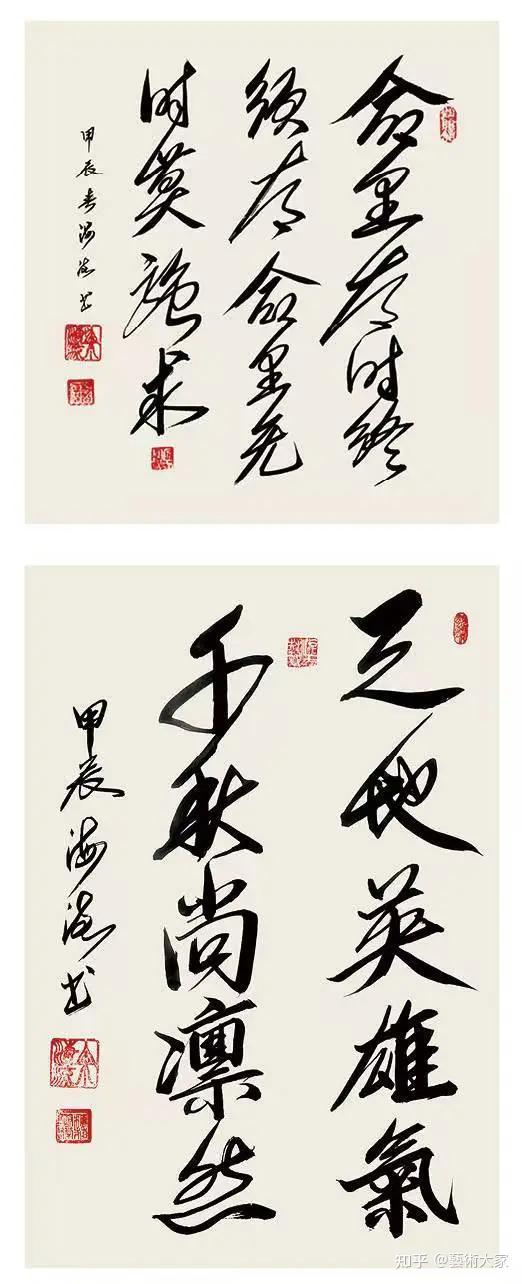 命里有时终
须有命里无
时莫强求
甲辰春海书
天地英雄氣
千秋尚凛然
甲辰海书
知乎 @藝術大家